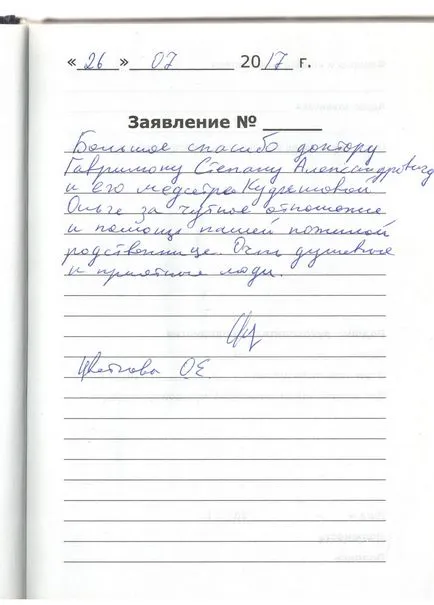 « 26 » 07 2017 г.
Заявление №
Большое спасибо доктору
Степану Александровичу
и его медсестре Кудряшовой
Ольге за чуткое отношение
и помощь нашей пожилой
родственнице. Очень душевные
и приятные люди.
Цветкова О.Е.